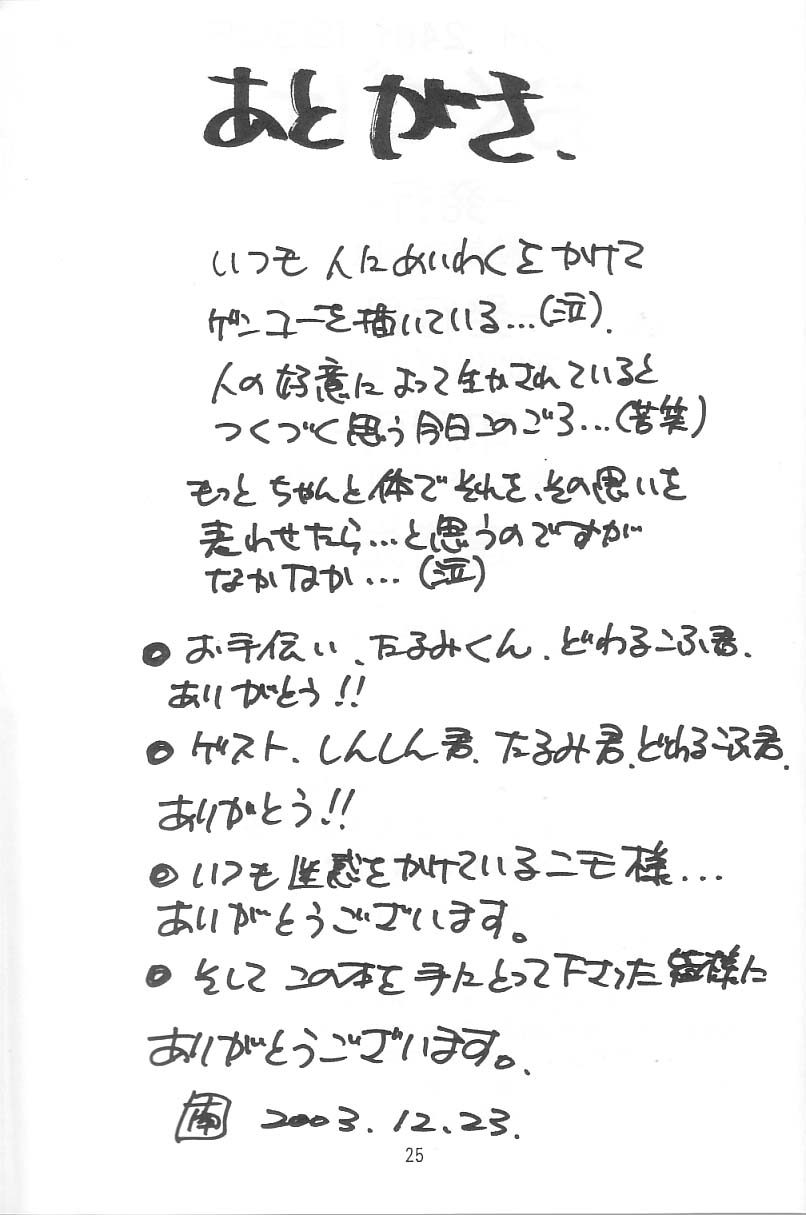 あとがき、
いつも人にめいわくをかけて
ゲンコーを描いている…(泣).
人の好意によって生かされていると
つくづく思う今日このごろ…(苦笑)
もっとちゃんと体でそれを、その思いを
表わせたら…と思うのですが
なかなか…(泣)
●お手伝い、たるみくん、どわるこふ君、
ありがとう!!
●ゲスト、しんしん君、たるみ君、どわるこふ君、
ありがとう!!
●いつも迷惑をかけているニモ様…
ありがとうございます。
●そしてこの本を手にとって下さった皆様に
ありがとうございます。
南 2003.12.23.
25